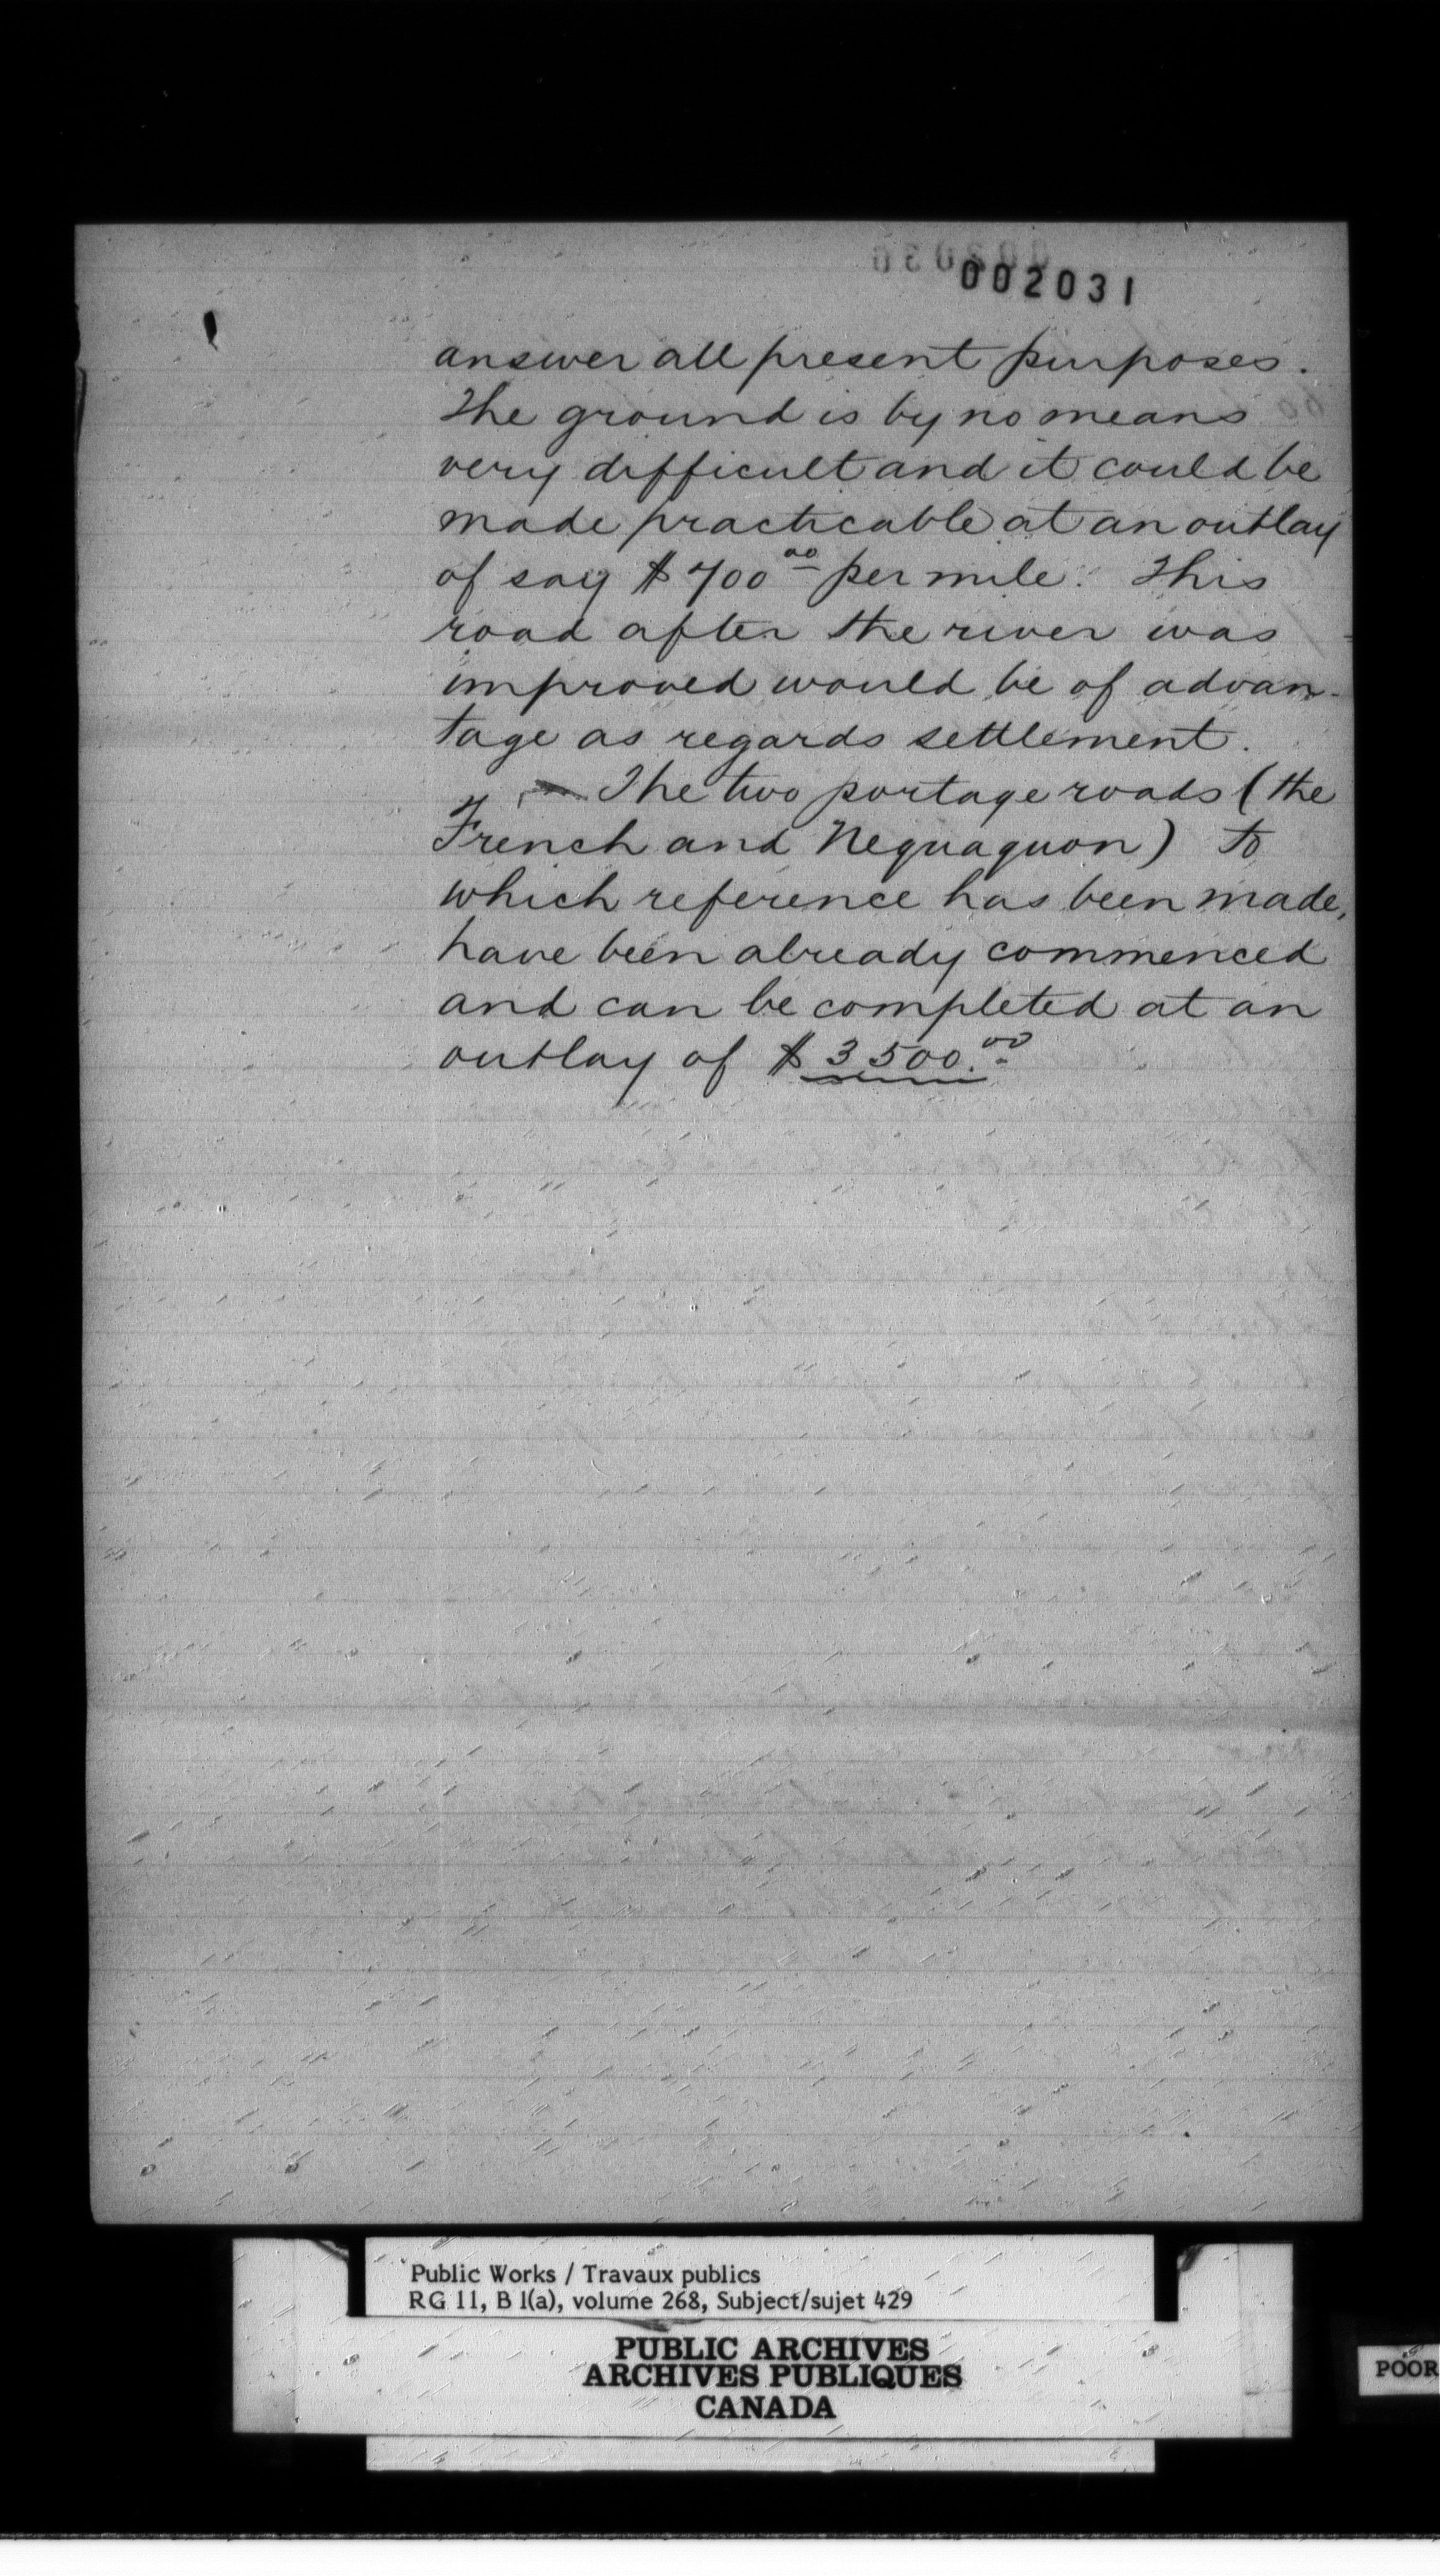 002031
answer all present purposes.
The ground is by no means
very difficult and it could be
made practicable at an outlay
of say $700.00 per mile. This
road after the river was
improved would be of advan-
tage as regards settlement.
The two portage roads (the
French and Nequaquon) to
which reference has been made,
have been already commenced
and can be completed at an
outlay of $3500.00
Public Works / Travaux publics
RG 11, B 1(a), volume 268, Subject/sujet 429
PUBLIC ARCHIVES
ARCHIVES PUBLIQUES
CANADA
POOR